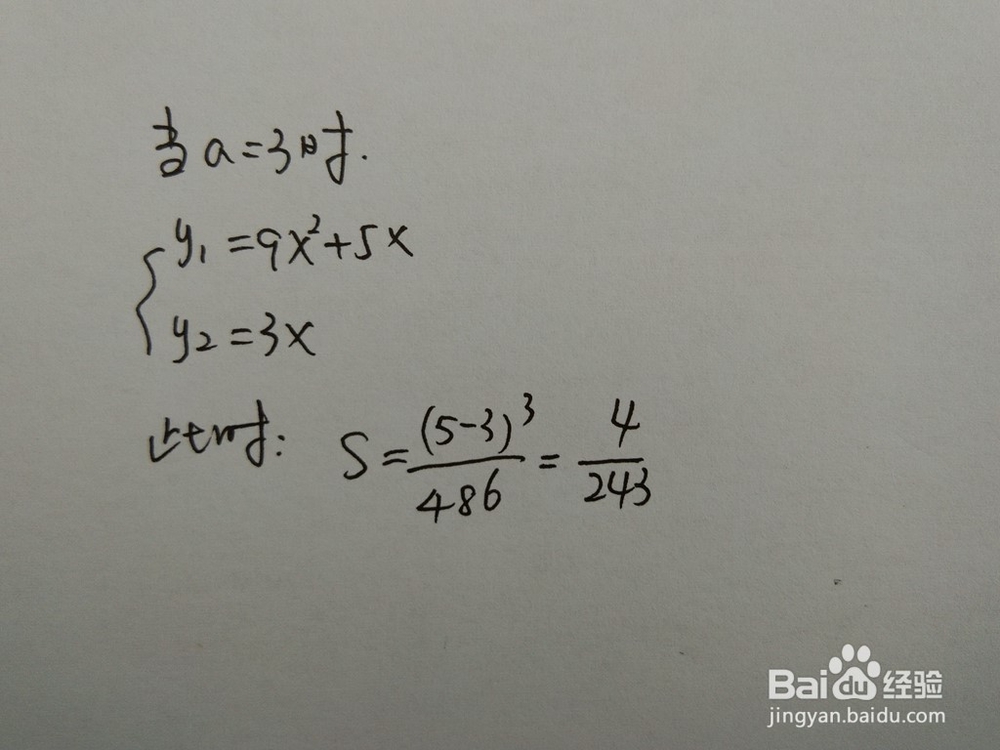 当a=3时.
y₁=9x²+5x
y₂=3x
此时: S=(5-3)³/486=4/243
Baidu经验
jingyan.baidu.com